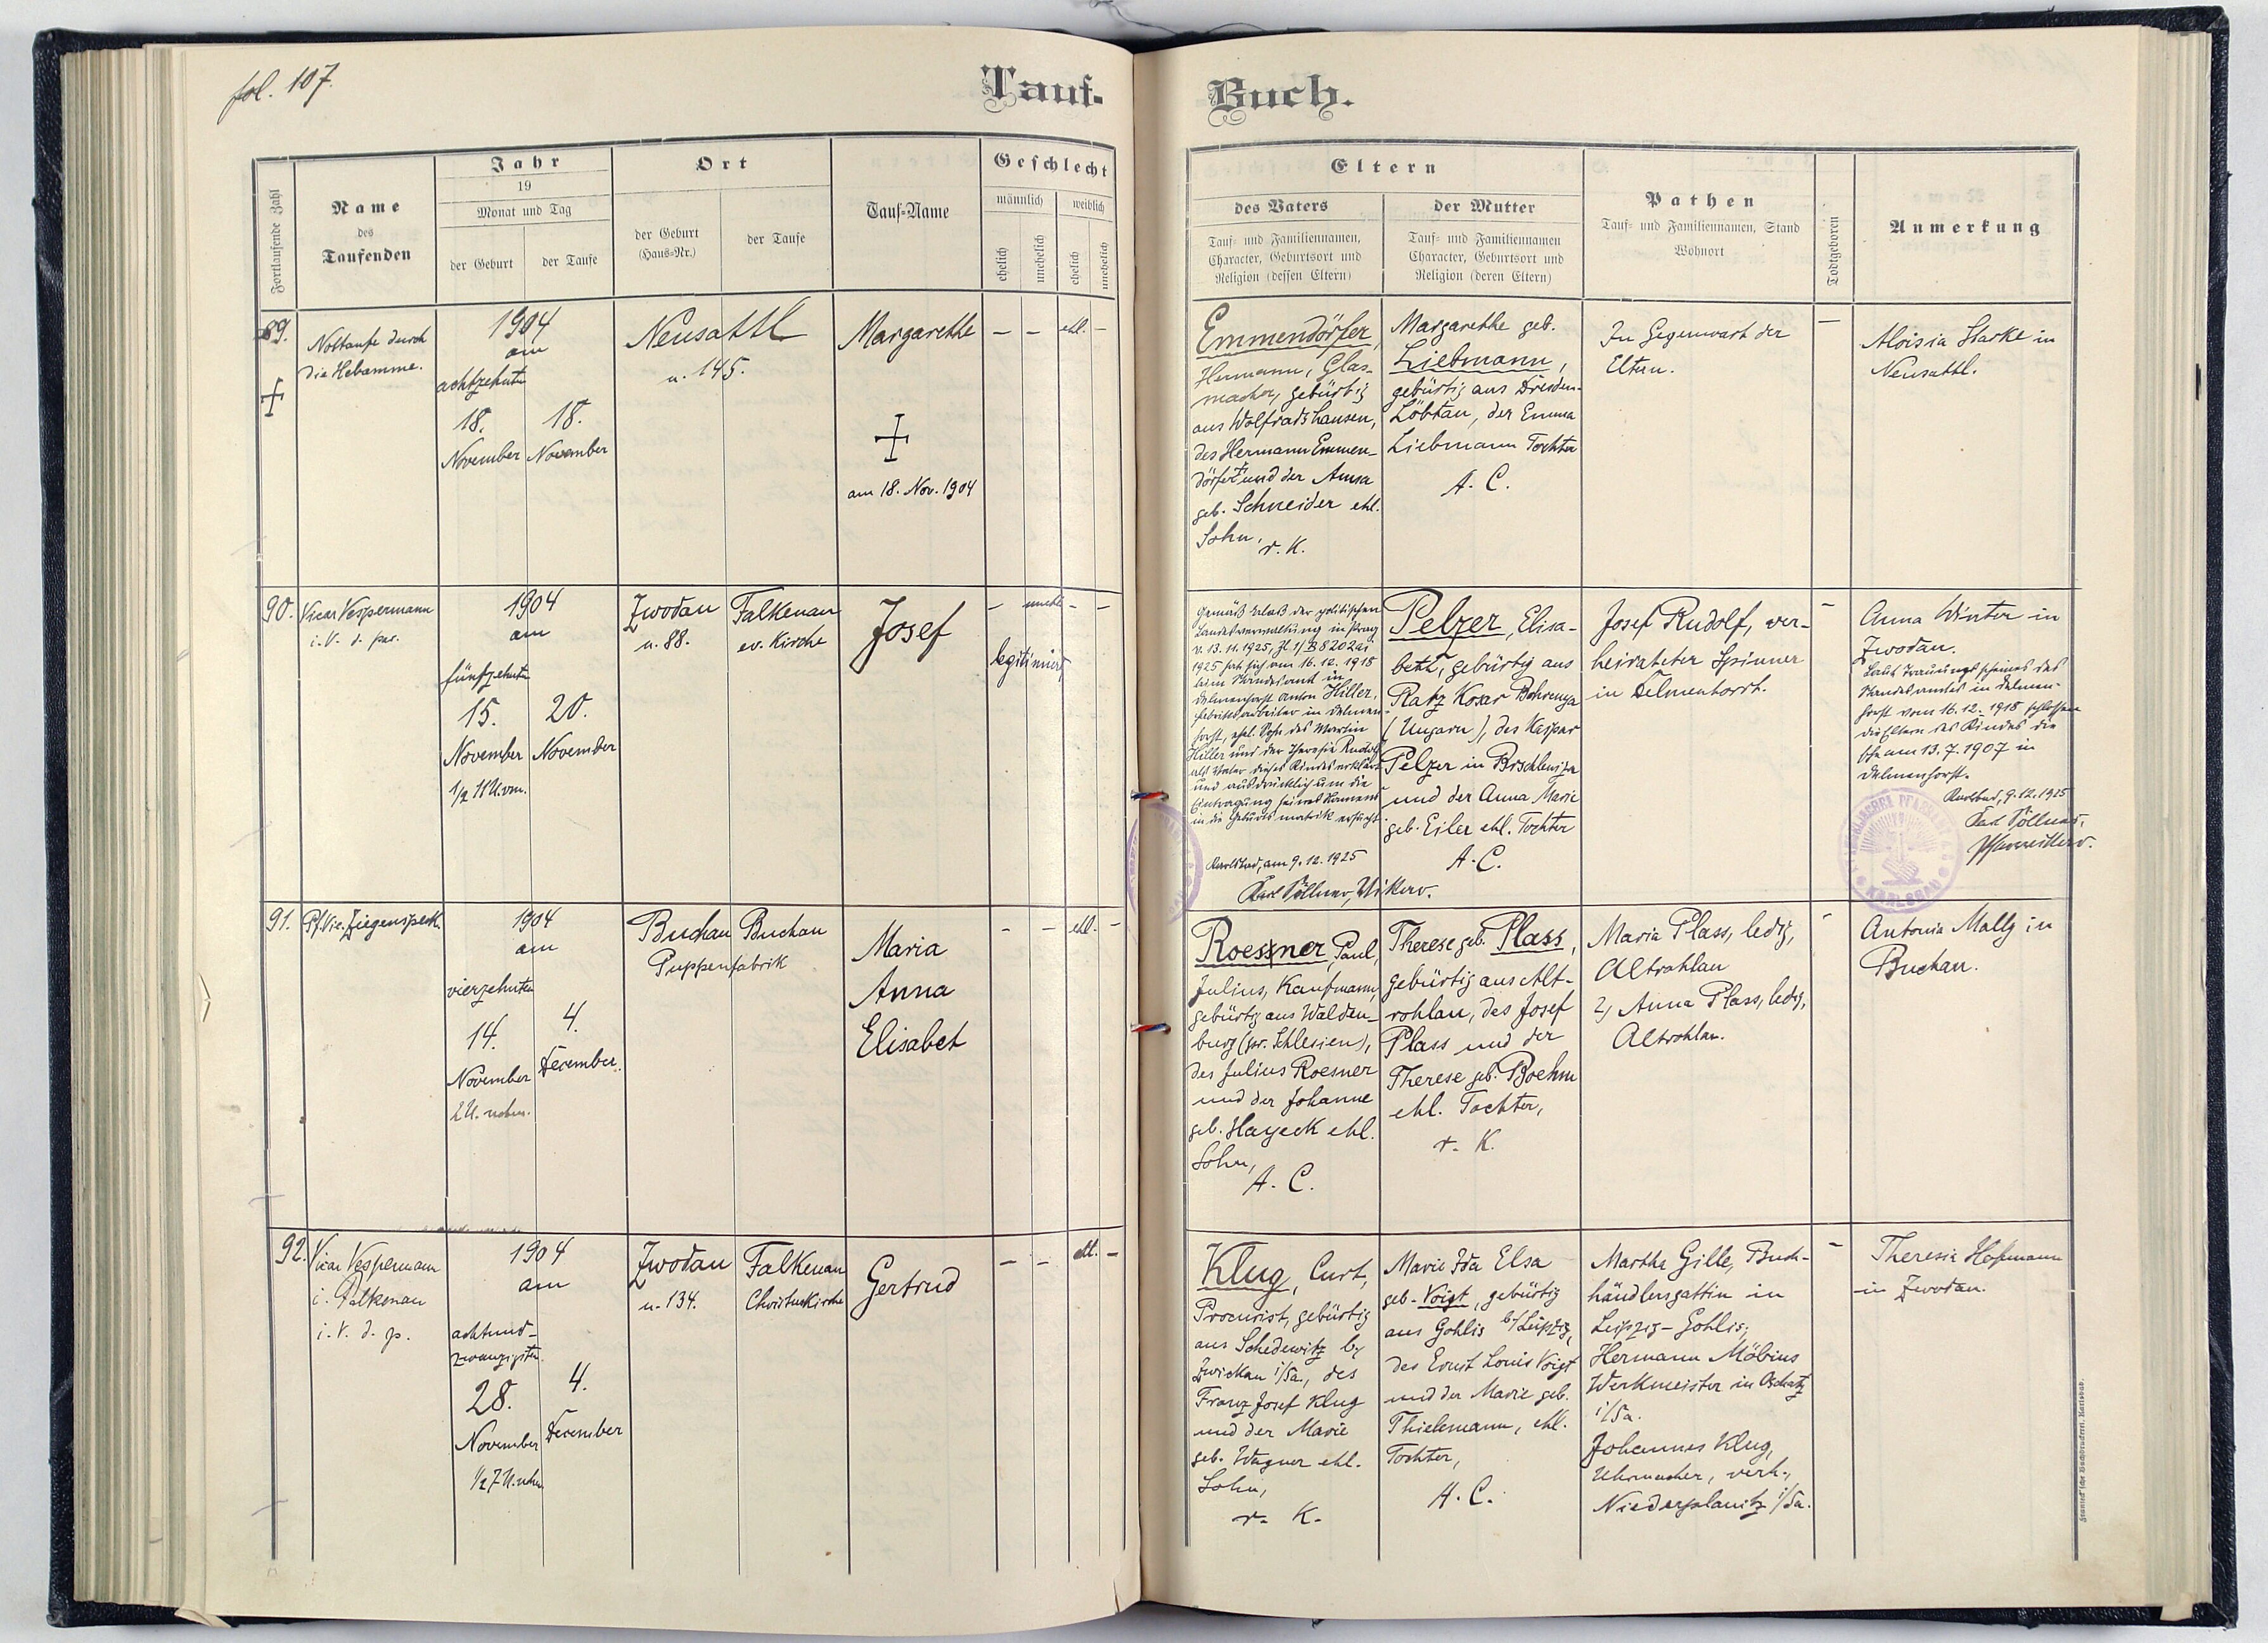 fol. 107.
Tauf-
Buch.
Fortlaufende Zahl
Name
des
Taufenden
Jahr
19
Monat und Tag
der Geburt
der Taufe
Ort
der Geburt
(Haus-Nr.)
der Taufe
Tauf-Name
Geschlecht
männlich
weiblich
ehelich
unehelich
ehelich
unehelich
Eltern
des Vaters
Tauf- und Familiennamen,
Character, Geburtsort und
Religion (dessen Eltern)
der Mutter
Tauf- und Familiennamen
Character, Geburtsort und
Religion (deren Eltern)
Pathen
Tauf- und Familiennamen, Stand
Wohnort
Todtgeboren
Anmerkung
89.
Nottaufe durch
die Hebamme.
1904
am
achtzehnten
18.
November
18.
November
Neusattl
n. 145.
Margarethe
am 18. Nov. 1904
– – ehl. –
Emmendörfer,
Hermann, Glas-
macher, gebürtig
aus Wolfradshausen,
des Hermann Emmen-
dörfer und der Anna
geb. Schneider ehl.
Sohn,
r. K.
Margarethe geb.
Liebmann,
gebürtig aus Dresden-
Löbtau, der Emma
Liebmann Tochter
A. C.
In Gegenwart der
Eltern.
–
Aloisia Starke in
Neusattl.
90.
Vicar Vespermann
i. V. d. par.
1904
am
fünfzehnten
15.
November
1/2 11 U. vm.
20.
November
Zwodau
n. 88.
Falkenau
ev. Kirche
Josef
– unehl. – –
legitimiert
Gemäß Erlaß der politischen
Landesverwaltung in Prag
v. 13. 11. 1925, Zl.
1925 hat sich am 16. 12. 1918
beim Standesamt in
Delmenhorst Anton Hiller,
Fabriksarbeiter in Delmen-
horst, ehel. Sohn des Martin
Hiller und der Theresia Rudolf
als Vater dieses Kindes erklärt
und ausdrücklich um die
Eintragung seines Namens
in die Geburtsmatrik ersucht.
Karlsbad, am 9. 12. 1925
Karl Pöllner, Vikar.
Pelzer, Elisa-
beth, gebürtig aus
(Ungarn), des Kaspar
Pelzer in
und der Anna Marie
geb. Eiler ehl. Tochter
A. C.
Josef Rudolf, ver-
heirateter Spinner
in Delmenhorst.
–
Anna Winter in
Zwodau.
Laut Trauungsscheines des
Standesamtes in Delmen-
horst vom 16. 12. 1918 schlossen
die Eltern des Kindes die
Ehe am 13. 7. 1907 in
Delmenhorst.
Karlsbad, 9. 12. 1925
Karl Pöllner,
KARLSBAD
91.
Pf. Vic. Ziegenspeck.
1904
am
vierzehnten
14.
November
2 U. nchm.
4.
December.
Buchau
Buchau
Puppenfabrik
Maria
Anna
Elisabet
– – ehl. –
Roesner, Paul,
Julius, Kaufmann,
gebürtig aus Walden-
burg (pr. Schlesien),
des Julius Roesner
und der Johanne
geb. Hayeck ehl.
Sohn,
A. C.
Therese geb. Plass,
gebürtig aus Alt-
rohlau, des Josef
Plass und der
Therese geb. Boehm
ehl. Tochter,
r. K.
Maria Plass, ledig,
Altrohlau
2, Anna Plass, ledig,
Altrohlau.
–
Antonia Mally in
Buchau.
92.
Vicar Vespermann
i. Falkenau
i. V. d. p.
1904
am
achtund-
zwanzigsten.
28.
November
1/2 7 U. nchm.
4.
December
Zwodau
n. 134.
Falkenau
Christuskirche
Gertrud
– – ehl. –
Klug, Curt,
Procurist, gebürtig
aus Schedewitz b/
Zwickau i/Sa., des
Franz Josef Klug
und der Marie
geb. Wagner ehl.
Sohn,
r. K.
Marie Ida Elsa
geb. Voigt, gebürtig
aus Gohlis b/Leipzig,
des Ernst Louis Voigt
und der Marie geb.
Thielemann, ehl.
Tochter,
A. C.
Martha Gille, Buch-
händlersgattin in
Leipzig-Gohlis;
Hermann Möbius
Werkmeister in Oschatz
i/Sa.
Johannes Klug,
Uhrmacher, verh.,
Niederplanitz i/Sa.
–
Theresia Hofmann
in Zwodau.